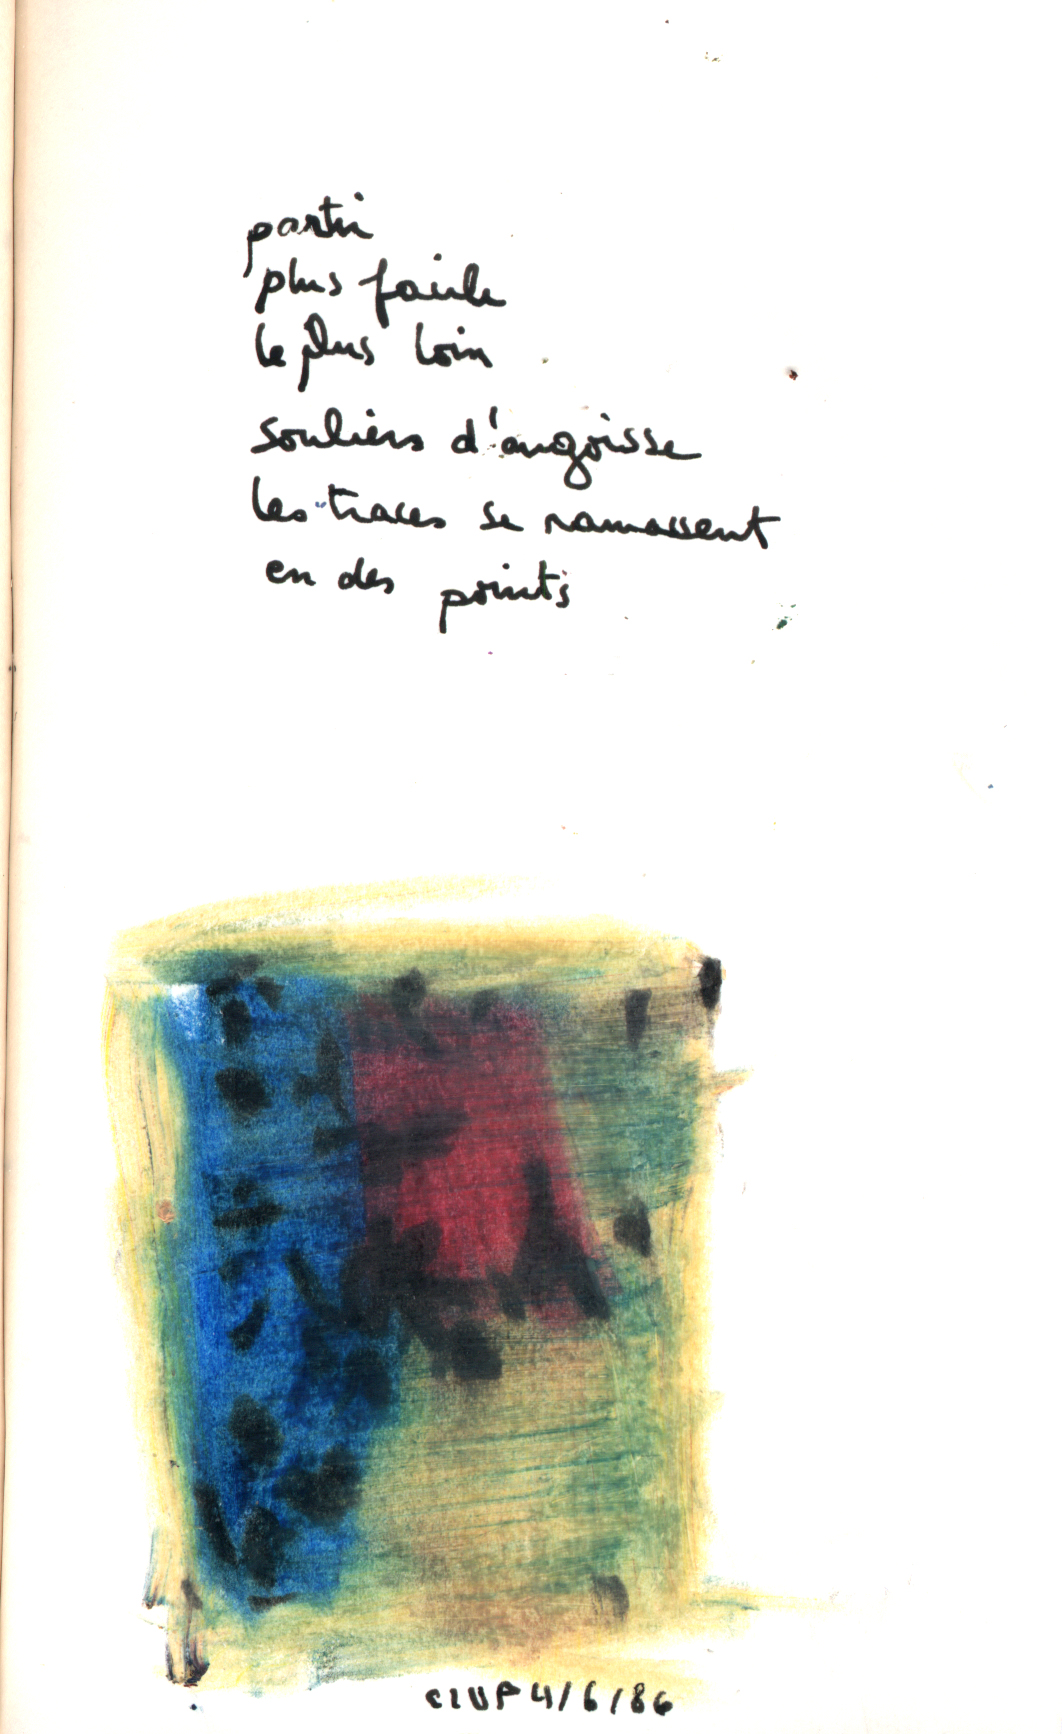 partir
plus facile
le plus loin
souliers d'angoisse
les traces se ramassent
en des points
CLUP 4/6/86